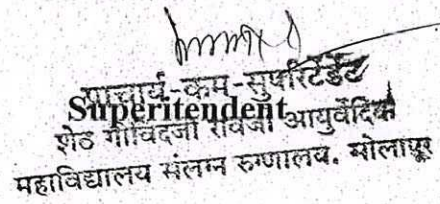 प्राचार्य-कम-सुपरिटेंडेंट
Superitendent
शेठ गोविंदजी रावजी आयुर्वेदिक
महाविद्यालय संलग्न रुग्णालय. सोलापूर